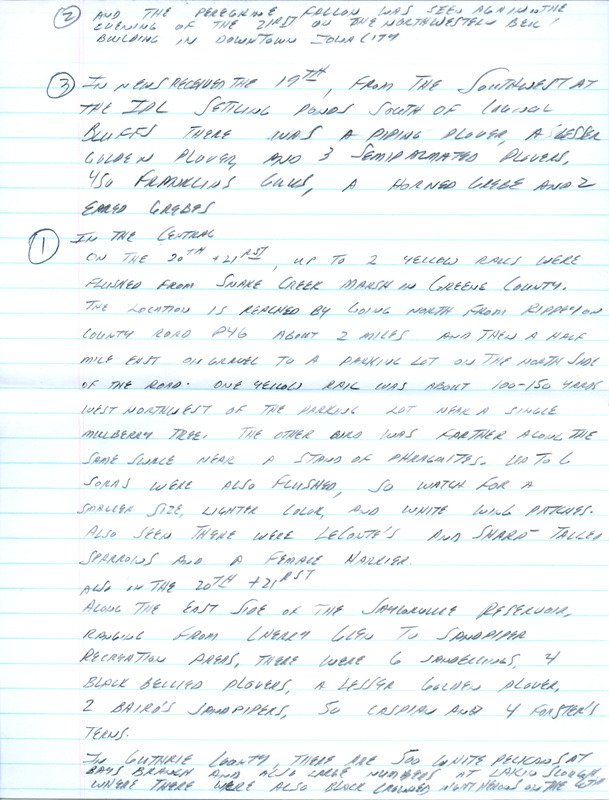 ② AND THE PEREGRINE FALCON WAS SEEN AGAIN ON THE
EVENING OF THE 21RST ON THE NORTHWESTERN BELL
BUILDING IN DOWNTOWN IOWA CITY
③ IN NEWS RECEIVED THE 19TH, FROM THE SOUTHWEST AT
THE IPL SETTLING PONDS SOUTH OF COUNCIL
BLUFFS THERE WAS A PIPING PLOVER, A LESSER
GOLDEN PLOVER, AND 3 SEMIPALMATED PLOVERS,
450 FRANKLINS GULLS, A HORNED GREBE AND 2
EARED GREBES
① IN THE CENTRAL
ON THE 20TH + 21RST, UP TO 2 YELLOW RAILS WERE
FLUSHED FROM SNAKE CREEK MARSH IN GREENE COUNTY.
THE LOCATION IS REACHED BY GOING NORTH FROM RIPPEY ON
COUNTY ROAD P46 ABOUT 2 MILES AND THEN A HALF
MILE EAST ON GRAVEL TO A PARKING LOT ON THE NORTH SIDE
OF THE ROAD. ONE YELLOW RAIL WAS ABOUT 100-150 YARDS
WEST NORTHWEST OF THE PARKING LOT NEAR A SINGLE
MULBERRY TREE. THE OTHER BIRD WAS FARTHER ALONG THE
SAME SWALE NEAR A STAND OF PHRAGMITES. UP TO 6
SORAS WERE ALSO FLUSHED, SO WATCH FOR A
SMALLER SIZE, LIGHTER COLOR, AND WHITE WING PATCHES.
ALSO SEEN THERE WERE LECONTE'S AND SHARP-TAILED
SPARROWS AND A FEMALE HARRIER.
ALSO ON THE 20TH + 21RST
ALONG THE EAST SIDE OF THE SAYLORVILLE RESERVOIR,
RANGING FROM CHERRY GLEN TO SANDPIPER
RECREATION AREAS, THERE WERE 6 SANDERLINGS, 4
BLACK BELLIED PLOVERS, A LESSER GOLDEN PLOVER,
2 BAIRD'S SANDPIPERS, 50 CASPIAN AND 4 FORSTER'S
TERNS.
IN GUTHRIE COUNTY, THERE ARE 500 WHITE PELICANS AT
BAYS BRANCH AND ALSO LARGE NUMBERS AT LAKIN SLOUGH
WHERE THERE WERE ALSO BLACK CROWNED NIGHT HERONS ON THE